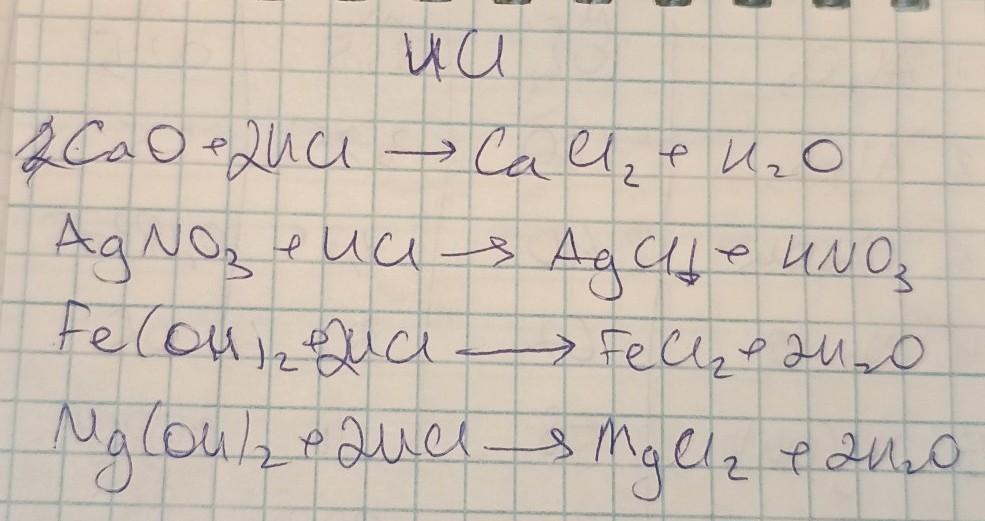 HCl
2CaO + 2HCl → CaCl₂ + H₂O
AgNO₃ + HCl → AgCl↓ + HNO₃
Fe(OH)₂ + 2HCl → FeCl₂ + 2H₂O
Mg(OH)₂ + 2HCl → MgCl₂ + 2H₂O